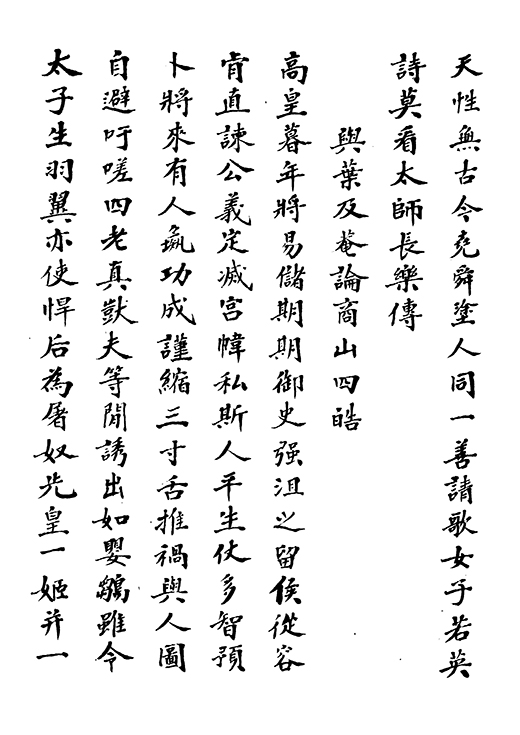 天性無古今堯舜塗人同一善請歌女子若英
詩莫看太師長樂傳
與葉及菴論商山四皓
高皇暮年將易儲期期御史强沮之留侯從容
肯直諫公義定滅宮幃私斯人平生仗多智預
卜將來有人氣功成謹縮三寸舌推禍與人圖
自避吁嗟四老真獃夫等閒誘出如嬰鶵雖令
太子生羽翼亦使悍后為屠奴先皇一姬并一